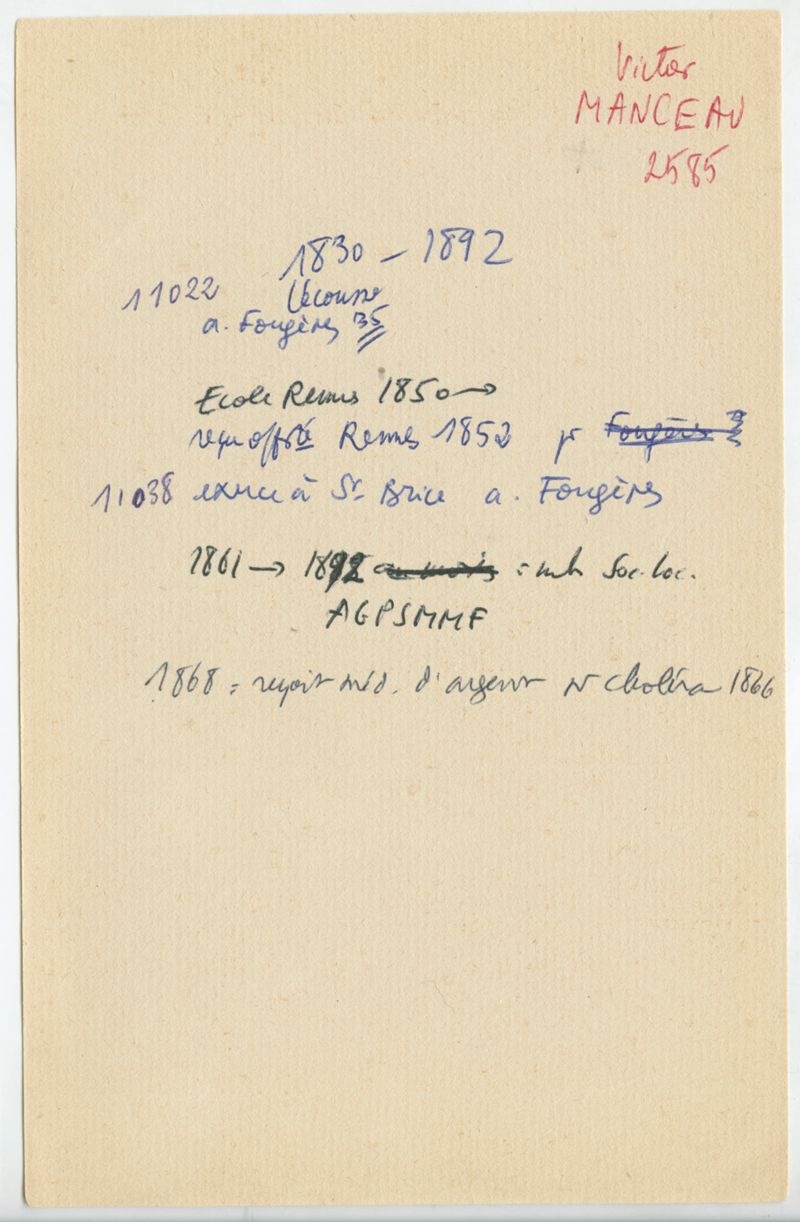 Victor
MANCEAU
2585
1830 - 1892
11022 Lécousse
a. Fougères 35
Ecole Rennes 1850 →
reçu offté Rennes 1852 pr Fougères ?
11038 exerce à St Brice a. Fougères
1861 → 1892 au mois = mb Soc. loc.
AGPSMMF
1868 = reçoit méd. d'argent pr choléra 1866